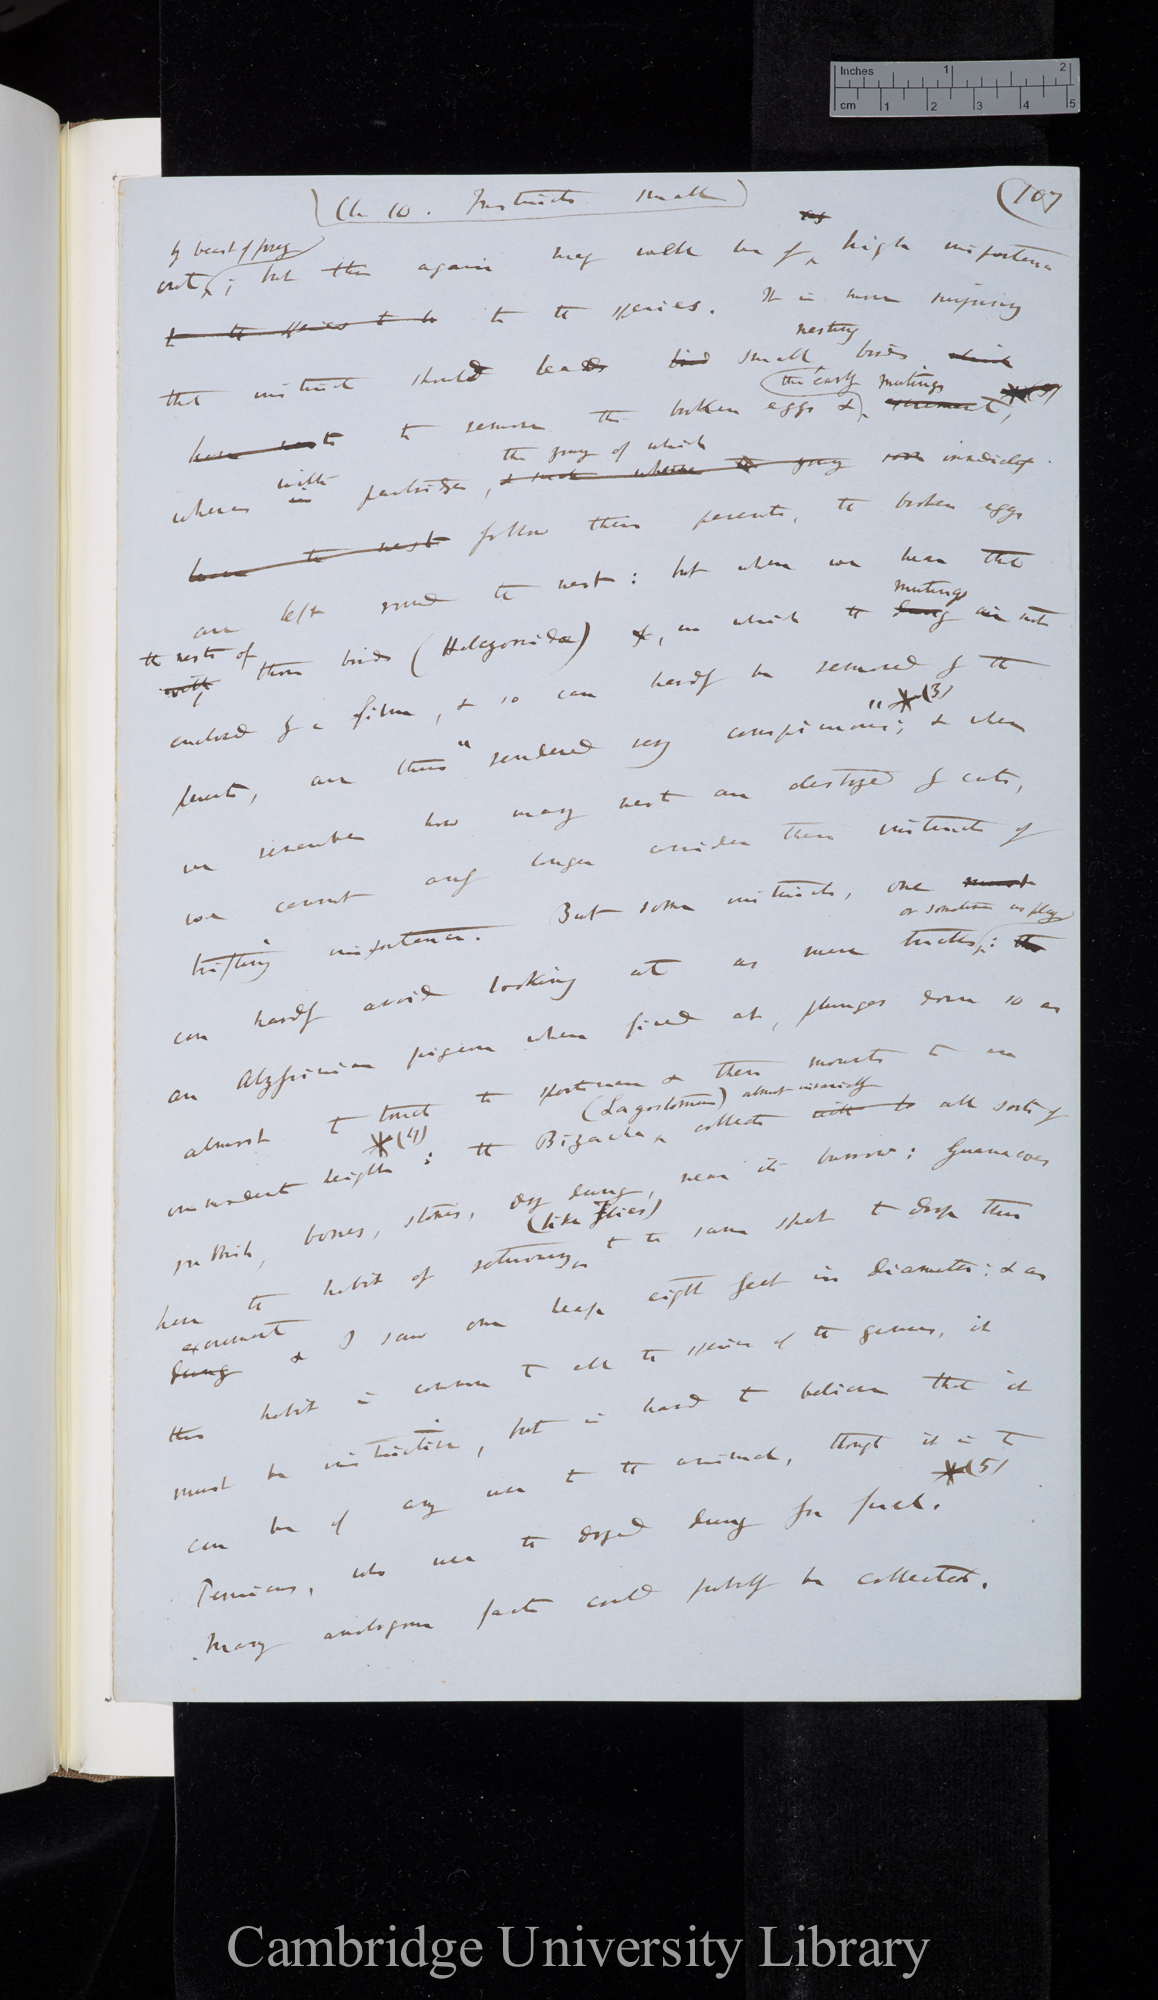 Inches 1 2
cm 1 2 3 4 5
Ch 10. Instincts small
107
by beast of prey
out; but this again may well be of high importance
to the species. It is more surprising
nesting
that instinct should lead small birds
the early mutings
to remove the broken eggs &
the young of which
whereas with partridges, immediately
follow their parents, the broken eggs
are left round the nest: but when we hear that
mutings
the nests of those birds (Halcyonidæ) &, in which the are not
enclosed by a film, & so can hardly be removed by the
*(3)
parents, are thus "rendered very conspicuous"; & when
we remember how many nest are destroyed by cats,
we cannot any longer consider these instincts of
trifling importance. But some instincts, one
or sometimes as play
can hardly avoid looking at as mere tricks:
an Abyssinian pigeon when fired at, plunges down so as
almost to touch the sportsman & then mounts to an
(Lagostomus) almost invariably
*(4)
immoderate height: the Bizcacha collects all sorts of
rubbish, bones, stones, dry dung, near its burrow: Guanacoes
(like Flies)
have the habit of returning to the same spot to drop their
excrement & I saw one heap eight feet in diameter; & as
this habit is common to all the species of the genus, it
must be instinctive, but is hard to believe that it
can be of any use to the animal, though it is to
*(5)
Peruvians, who use the dryed dung for fuel.
Many analogous facts could probably be collected.
Cambridge University Library